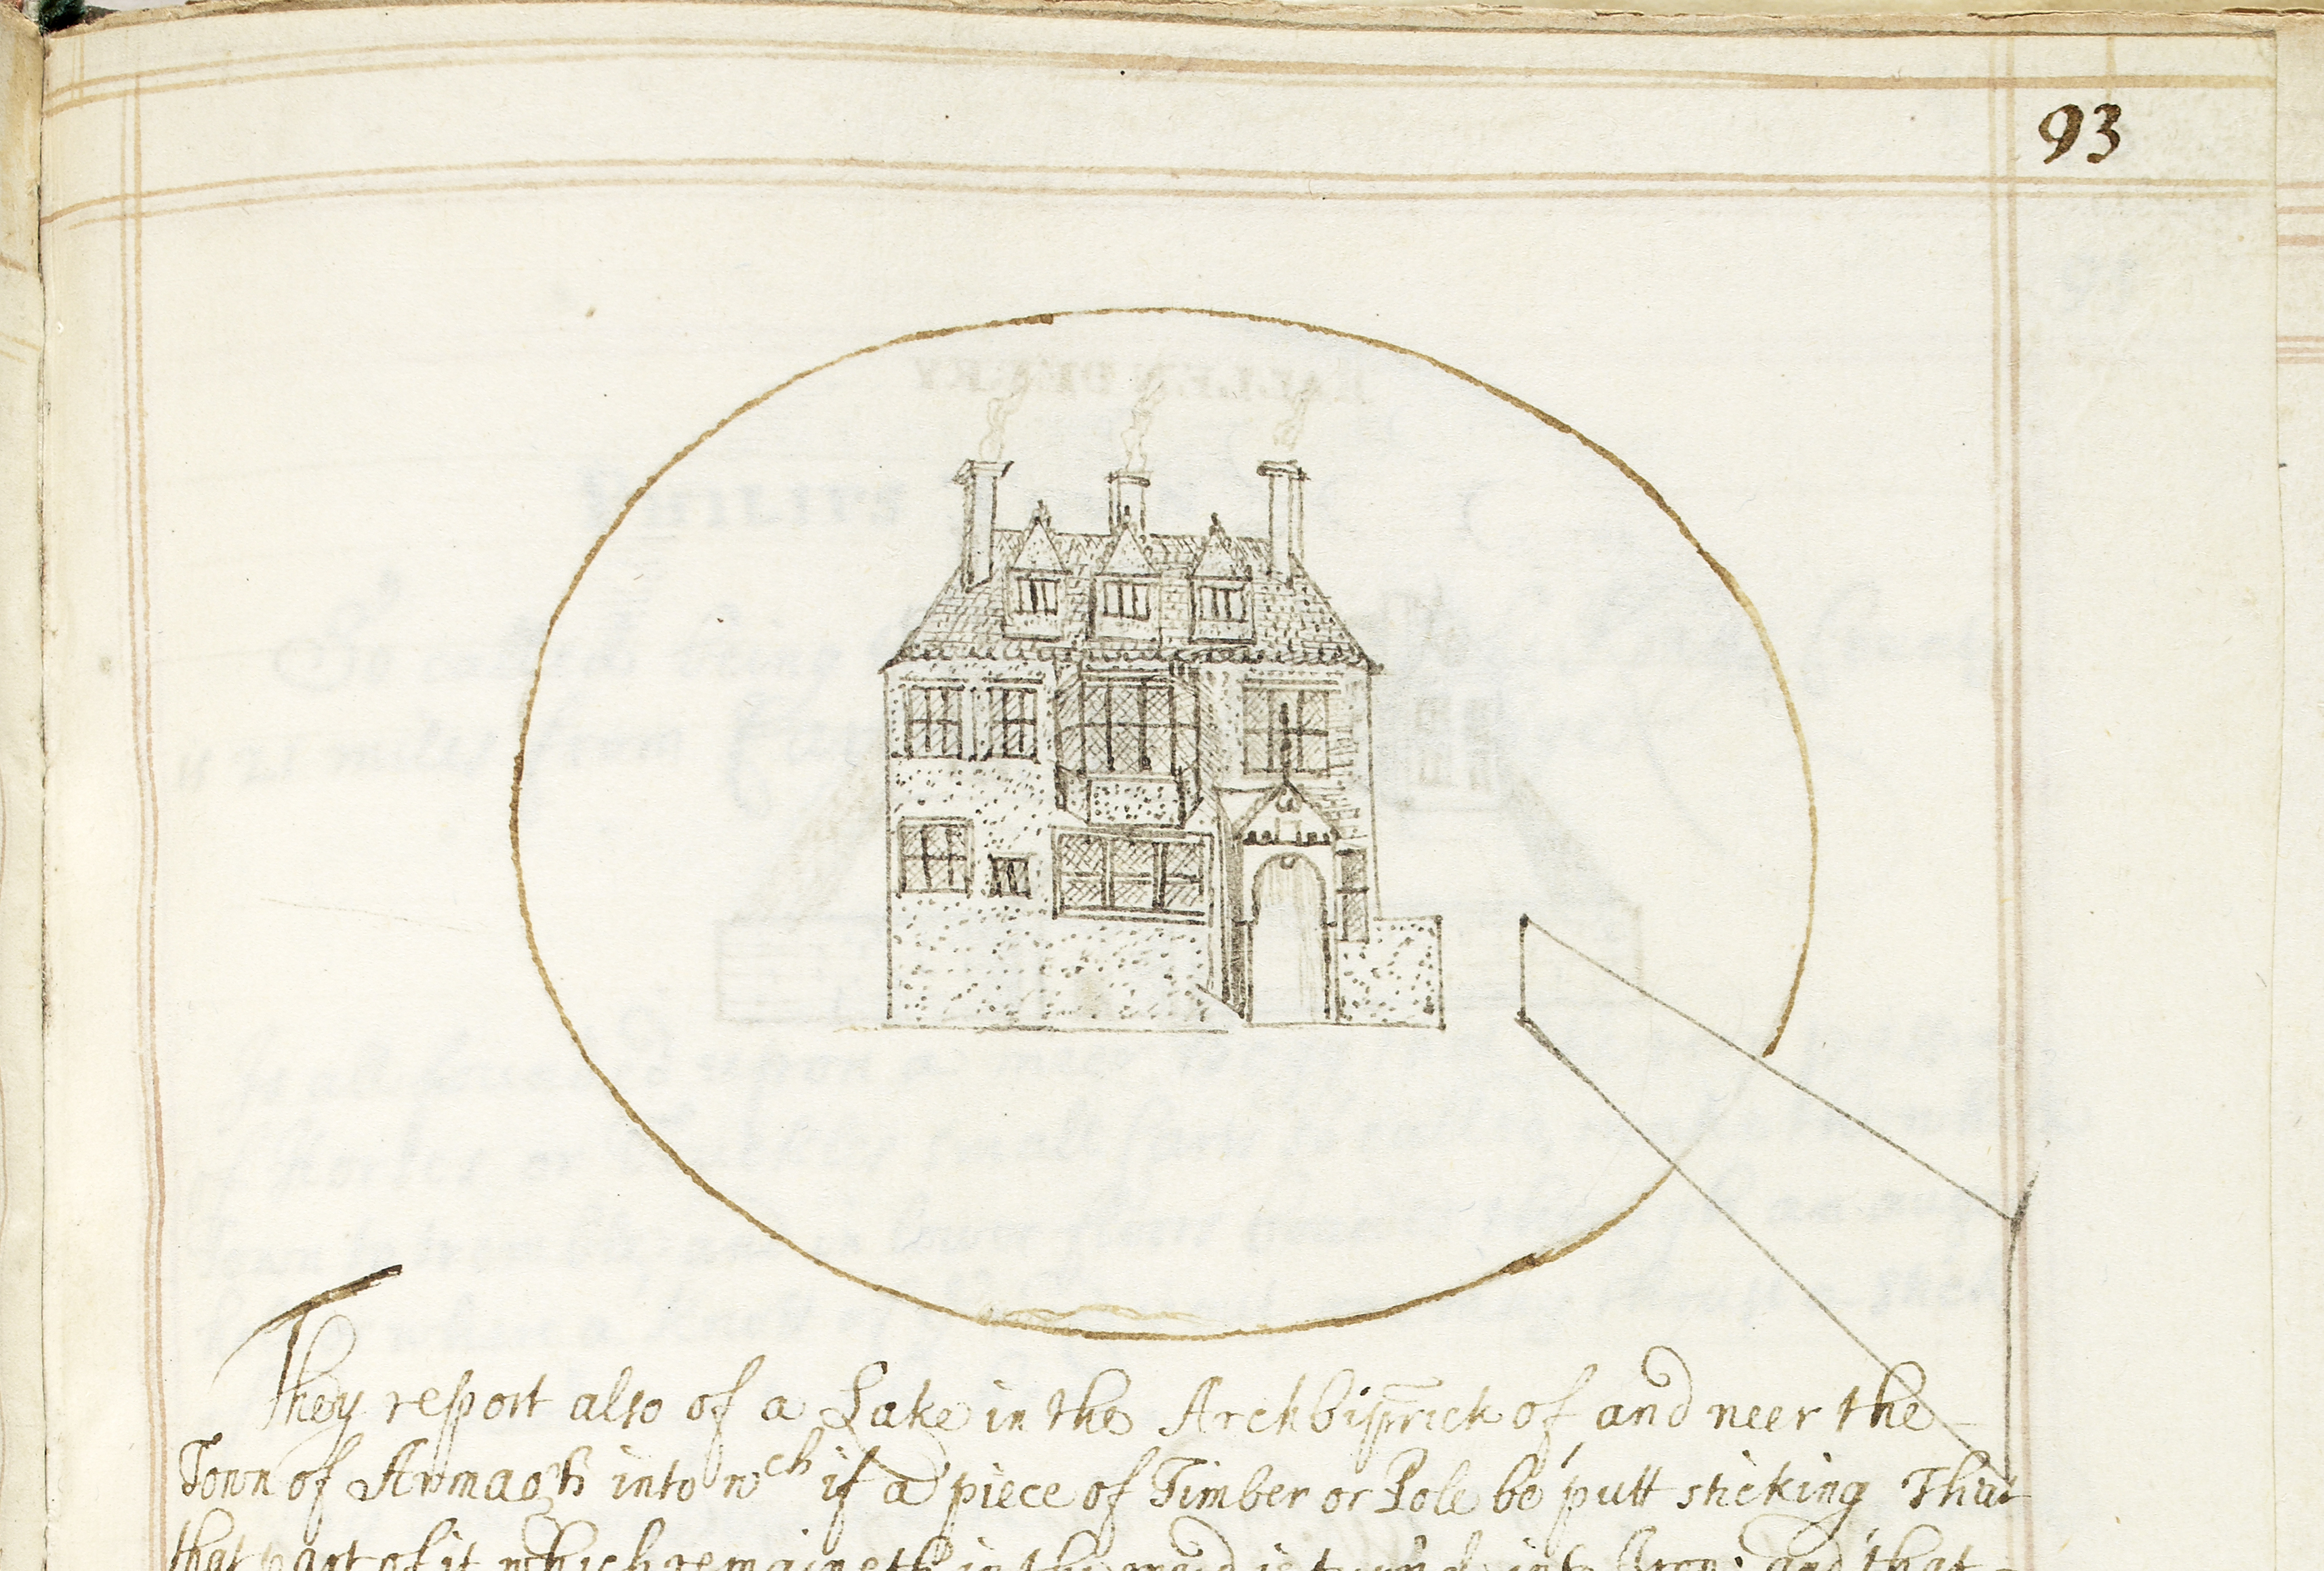 93
They report also of a Lake in the Archbisprick of and neer the
Town of Armagh into wch if a piece of Timber or Pole be putt sticking That
that part of it which remaineth in the mud is turnd into Iron: and that